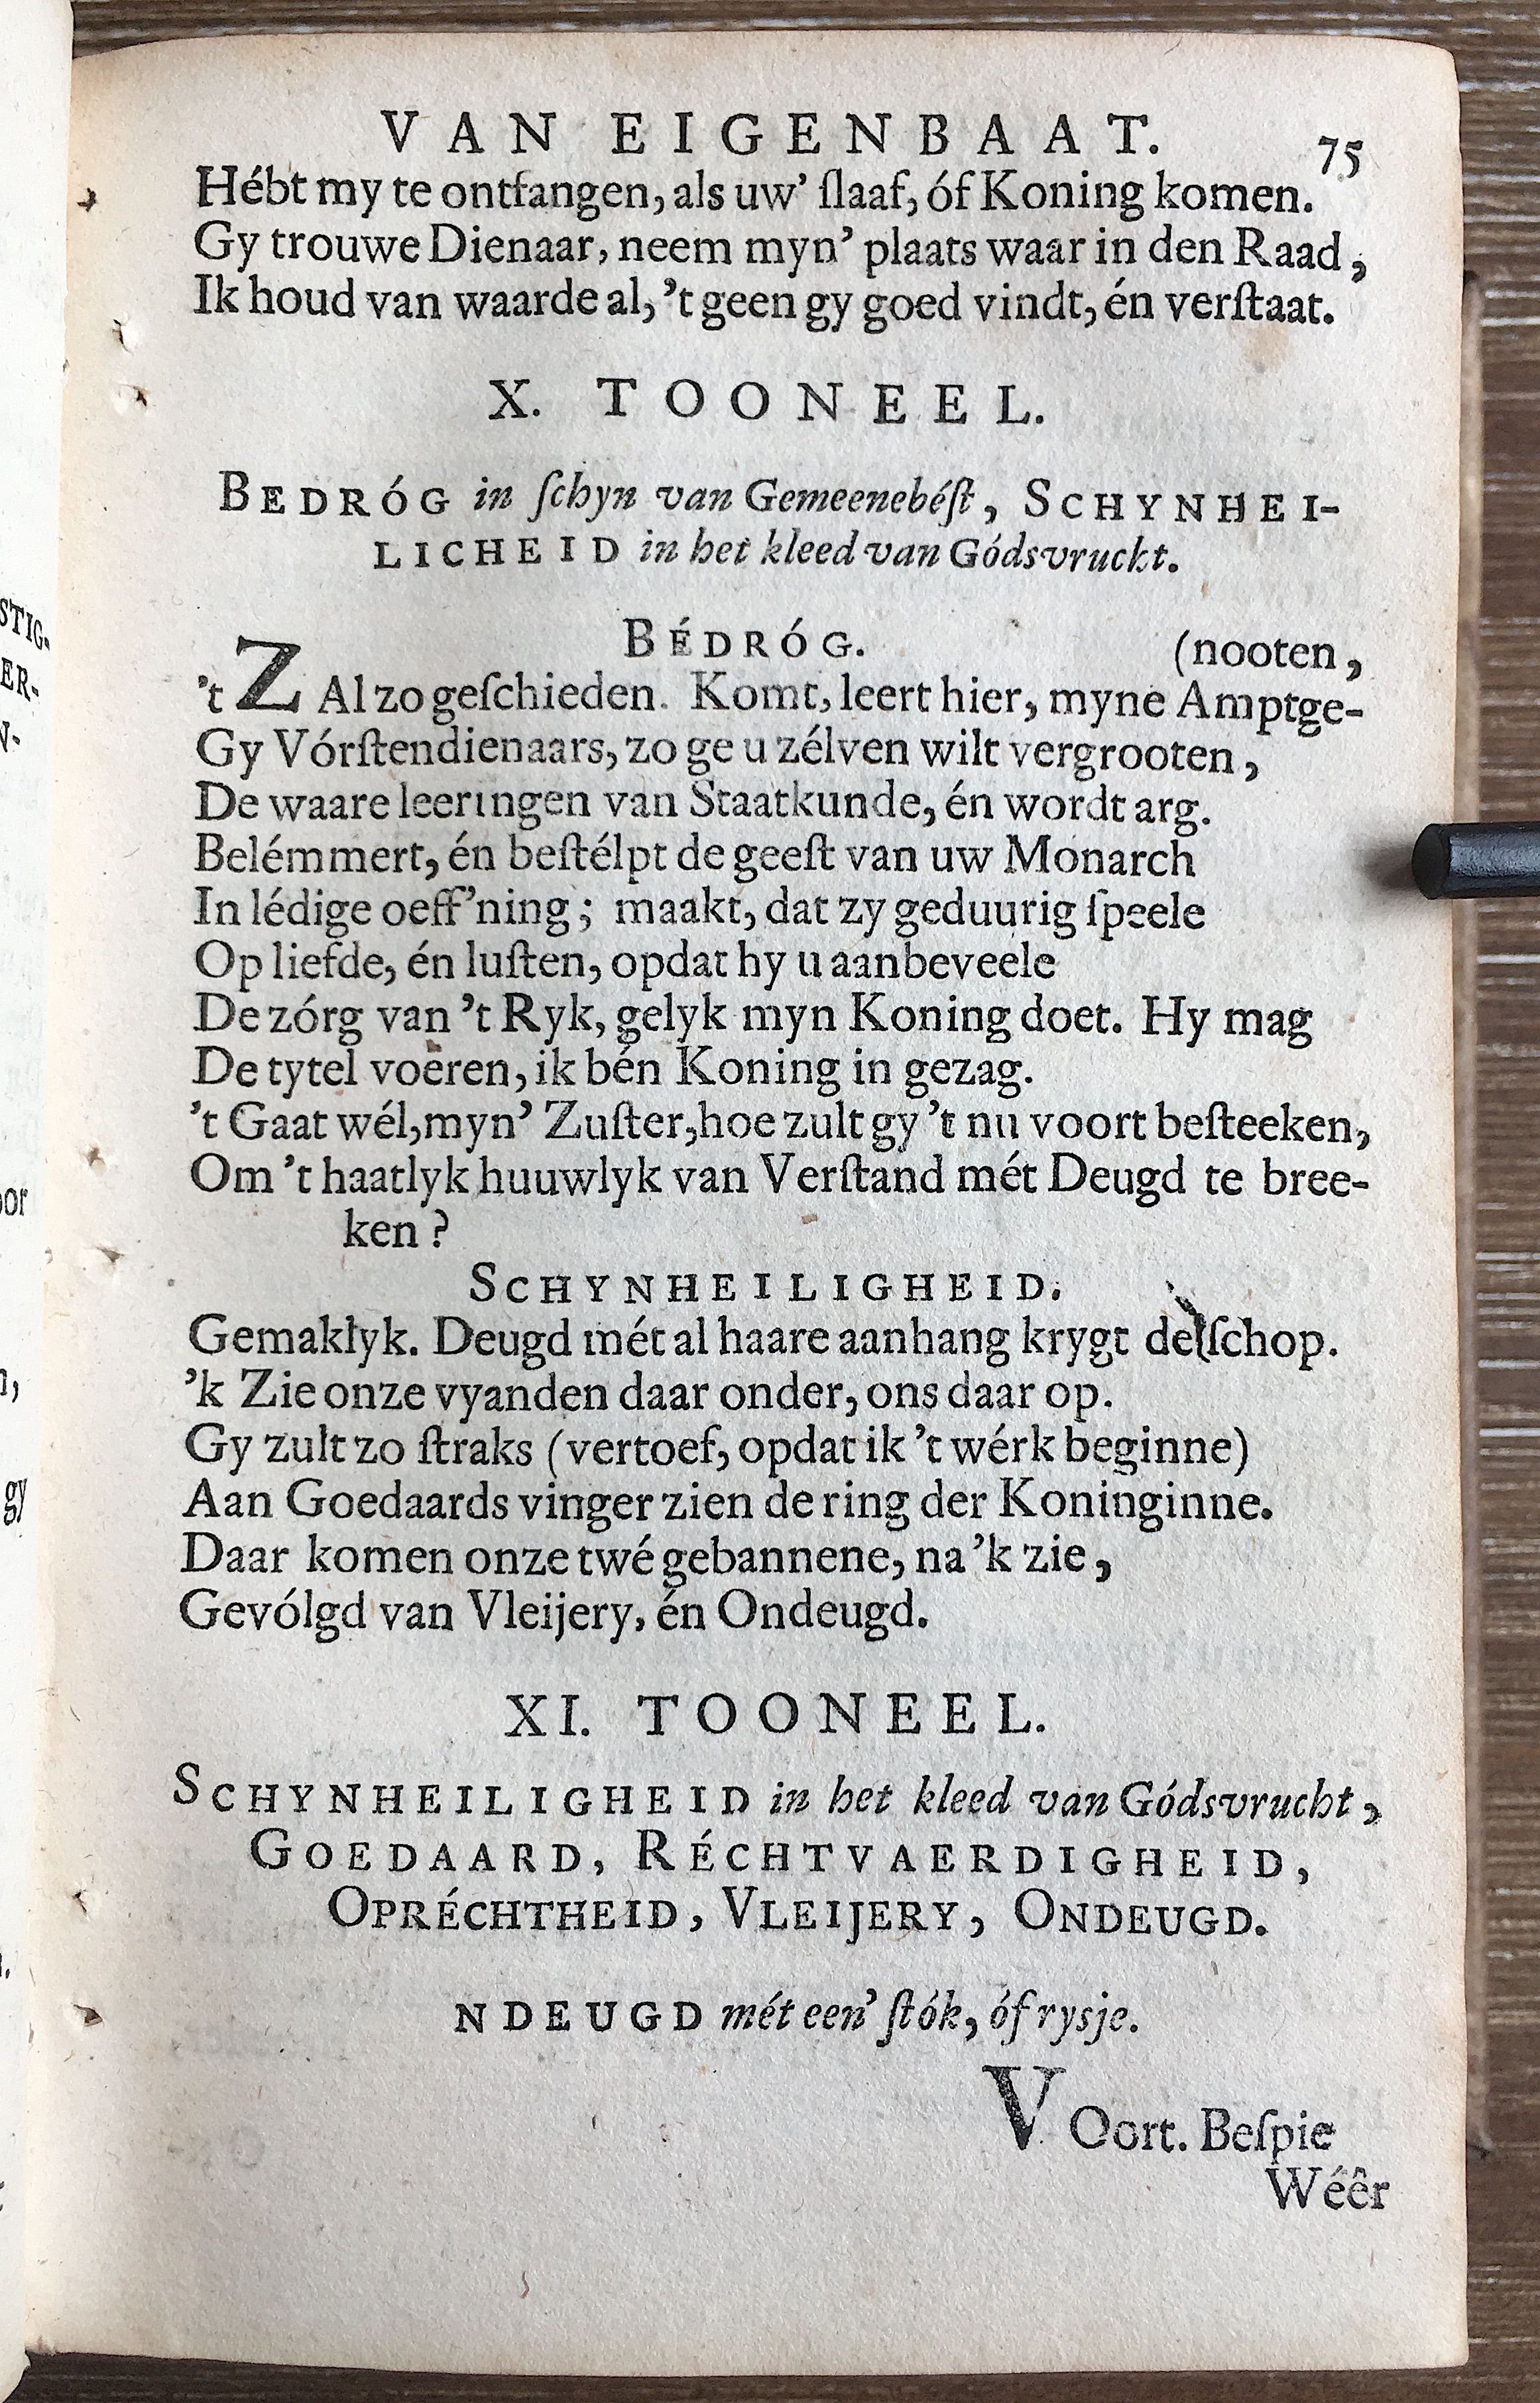 VAN EIGENBAAT. 75
Hébt my te ontfangen, als uw’ ſlaaf, óf Koning komen.
Gy trouwe Dienaar, neem myn’ plaats waar in den Raad,
Ik houd van waarde al, ’t geen gy goed vindt, én verſtaat.
X. TOONEEL.
BEDRÓG in ſchyn van Gemeenebéſt, SCHYNHEI-
LICHEID in het kleed van Gódsvruckt.
BÉDRÓG.
(nooten,
’t ZAl zo geſchieden. Komt, leert hier, myne Amptge-
Gy Vórſtendienaars, zo ge u zélven wilt vergrooten,
De waare leeringen van Staatkunde, én wordt arg.
Belémmert, én beſtélpt de geeſt van uw Monarch
In lédige oeff’ning; maakt, dat zy geduurig ſpeele
Op liefde, én luſten, opdat hy u aanbeveele
De zórg van ’t Ryk, gelyk myn Koning doet. Hy mag
De tytel voeren, ik bén Koning in gezag.
’t Gaat wél, myn’ Zuſter, hoe zult gy ’t nu voort beſteeken,
Om ’t haatlyk huuwlyk van Verſtand mét Deugd te bree-
ken?
SCHYNHEILIGHEID.
Gemaklyk. Deugd mét al haare aanhang krygt de ſchop.
’k Zie onze vyanden daar onder, ons daar op.
Gy zult zo ſtraks (vertoef, opdat ik ’t wérk beginne)
Aan Goedaards vinger zien de ring der Koninginne.
Daar komen onze twé gebannene, na ’k zie,
Gevólgd van Vleijery, én Ondeugd.
XI. TOONEEL.
SCHYNHEILIGHEID in het kleed van Gódsvrucht,
GOEDAARD, RÉCHTVAERDIGHEID,
OPRÉCHTHEID, VLEIJERY, ONDEUGD.
NDEUGD mét een’ ſtók, óf rysje.
VOort. Beſpie
Wéêr